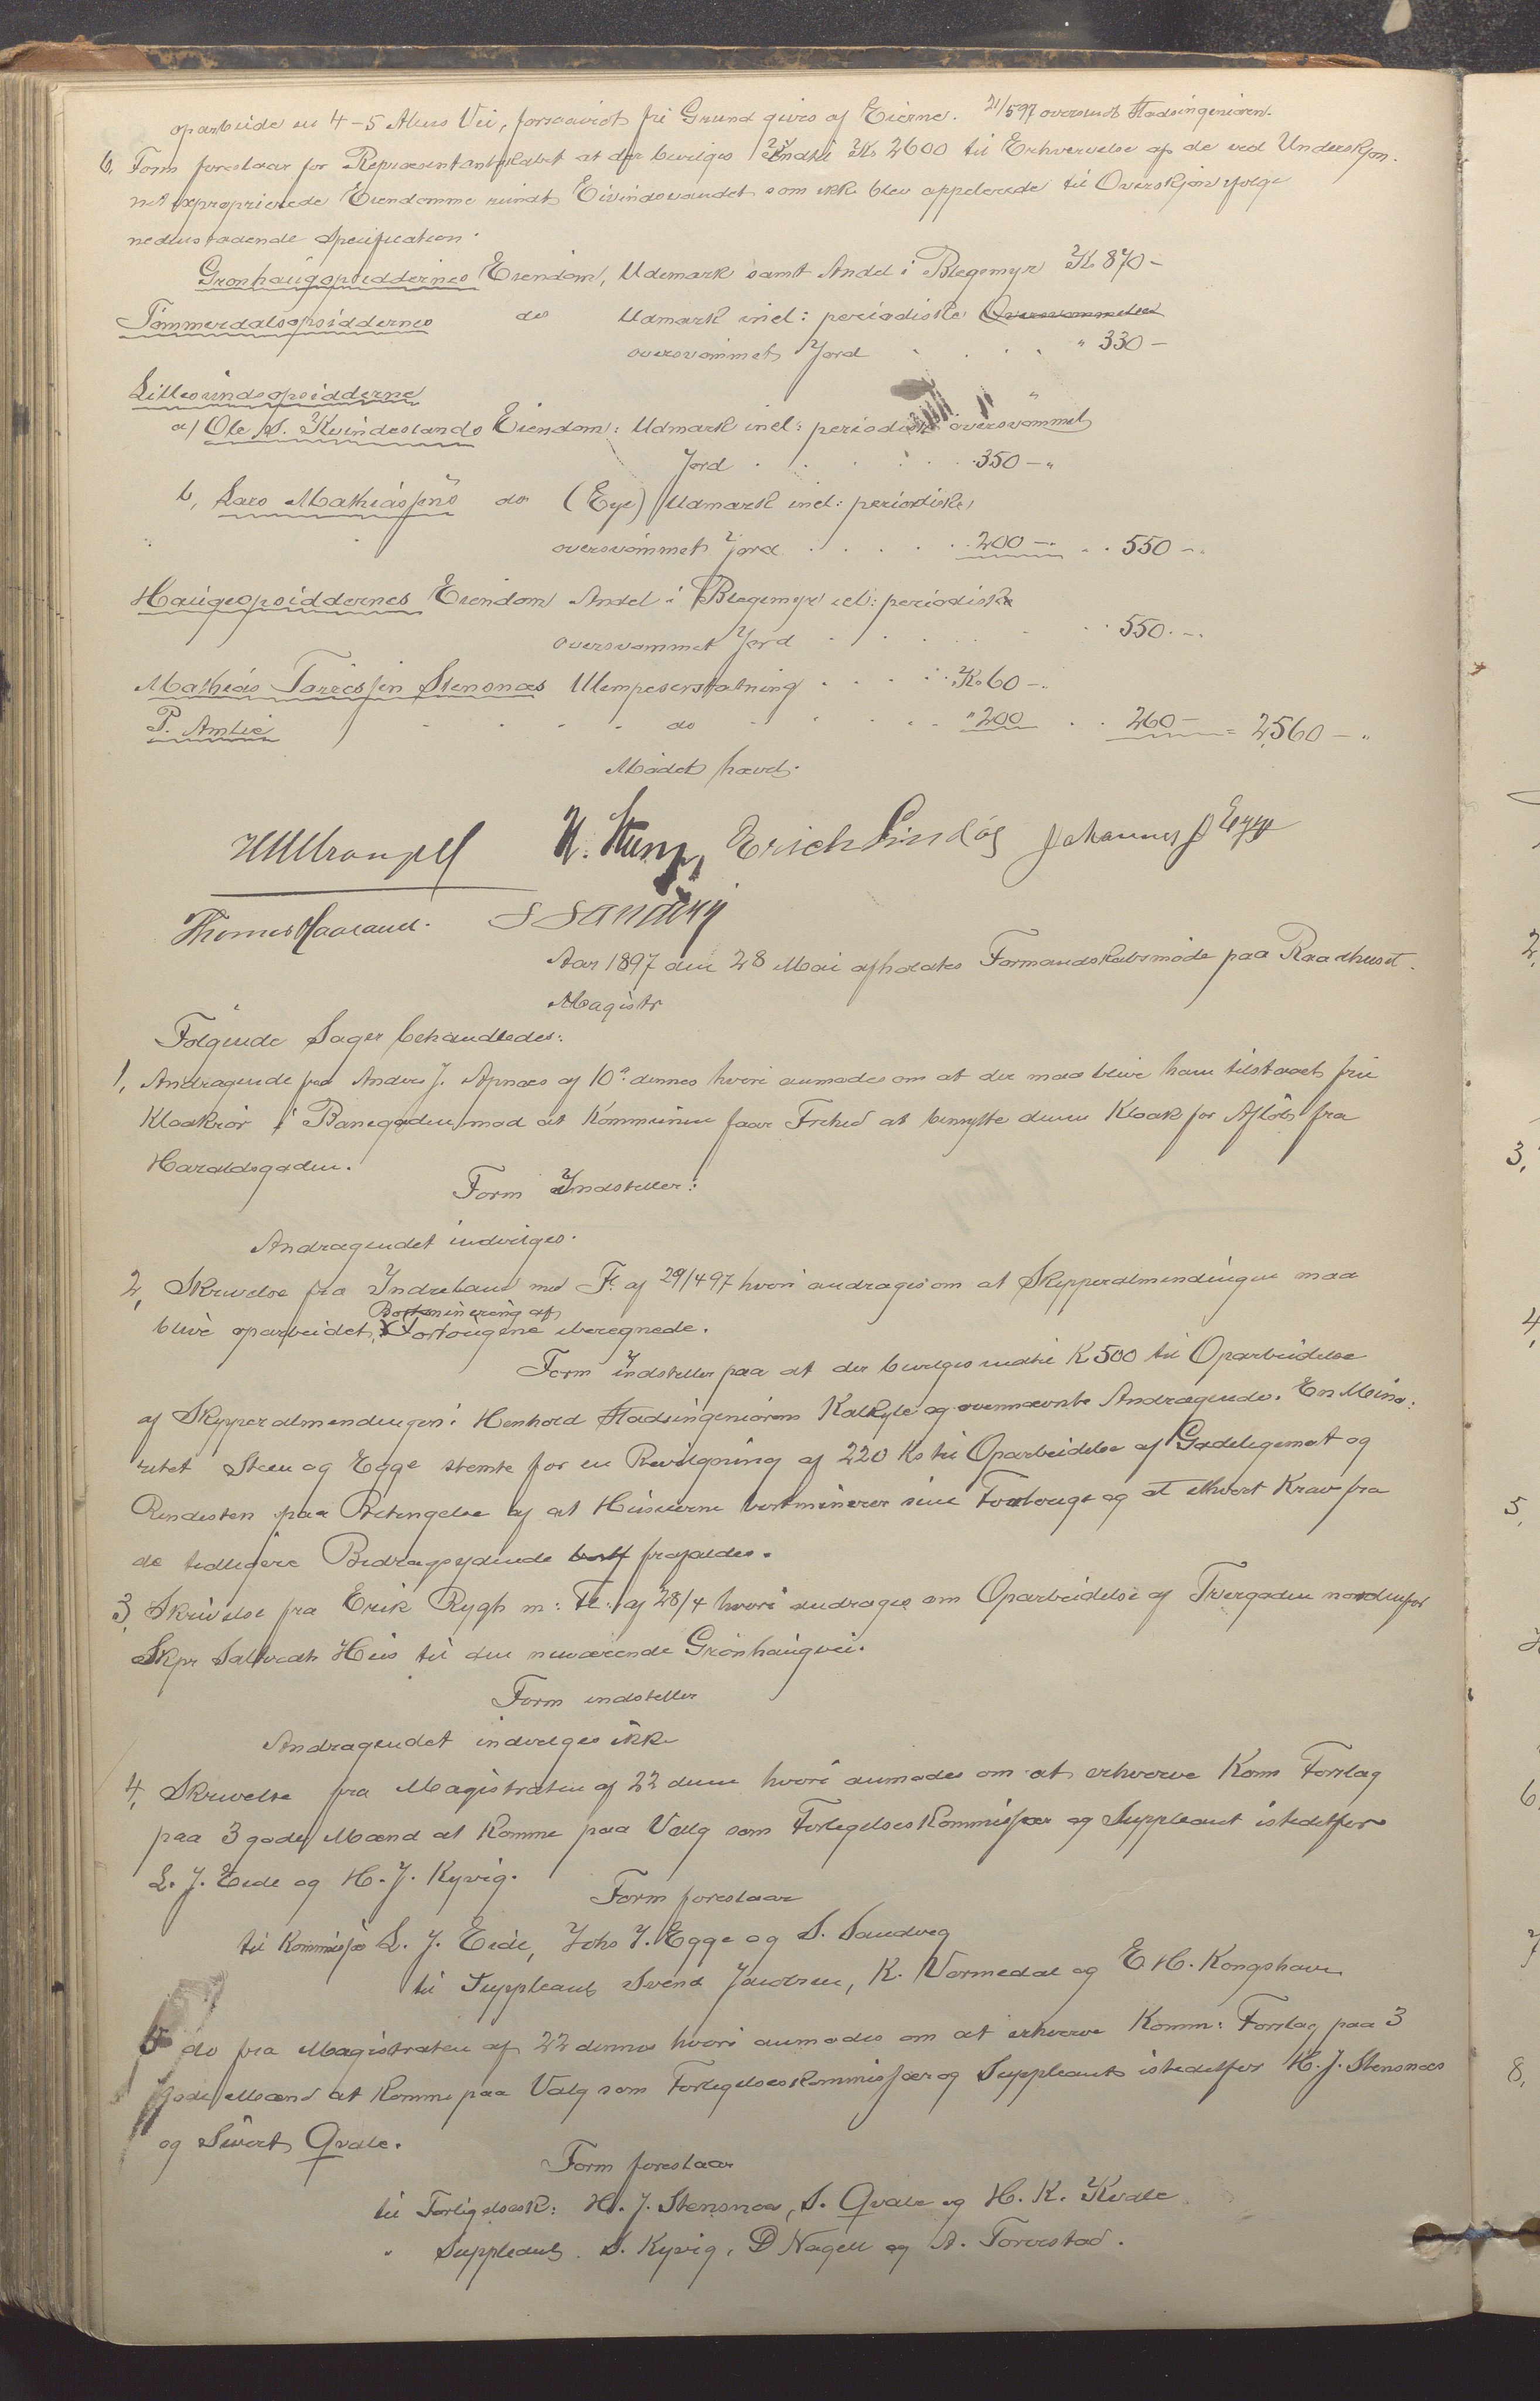 oparbeide en 4-5 Alens Vei, forsaavidt fri Grund gives af Eierne. 21/5 97 oversendt Stadsingeniøren.
6, Form foreslaar for Repræsentantskabet at der bevilges indtil Kr 2600 til Erhvervelse af de ved Underskjøn-
net exproprierede Eiendomme rundt Eivindsvandet som ikke blev appelerede til Overskjøn ifølge
nedenstaaende Specification.
Grønhaugopsiddernes Eiendom, Udemark samt Andel i Blegemyr Kr 870-
Tømmerdalsopsiddernes do Udmark incl: periodiske Oversvømmelser
oversvømmet Jord " 330-
Lillesundsopsidderne
a) Ole S. Kvindeslands Eiendom: Udmark incl: periodisk oversvømmet
Jord . . . . 350-"
b, Lars Mathiassens do (Eye) Udmark incl: periodiske
oversvømmet Jord . . . . . 200-. . . 550-.
Haugeopsiddernes Eiendom Andel i Blegemyr icl: periodiske
oversvømmet Jord . . . . 550.-.
Mathias Torressen Stensnæs Ulempeserstatning . . . . Kr 60-.
P. Amlie - - - - do - - - - " 200 . . 260- = 2,560-"
Mødet hævet.
H. Steen, Erich Lindøe Johannes J Egge
Thomas Haaland. S Sandvig
Aar 1897 den 28 Mai afholdtes Formandskabsmøde paa Raadhuset.
Magistr
Følgende Sager behandledes:
1, Andragende fra Anders J. Apnæs af 10de dennes hvori anmodes om at der maa blive ham tilstaaet frie
Kloakrør i Banegaden mod at Kommunen faar Frihed at benytte denne Kloak for Afløb fra
Haraldsgaden.
Form Indstiller:
Andragendet indvilges.
2, Skrivelse fra Indreland med Fl af 29/4 97 hvori andrages om at Skipperalmendingen maa
Bortminering af
blive oparbeidet, Fortougene iberegnede.
Form indstiller paa at der bevilges indtil K 500 til Oparbeidelse
af Skipperalmendingen i Henhold Stadsingeniørens Kalkyle og ovennævnte Andragende. En Mino-
ritet Steen og Egge stemte for en Bevilgning af 220 Kr til Oparbeidelse af Gadelegemet og
Rendesten paa Betingelse af at Huseierne bortminerer sine Fortouge og at ethvert Krav fra
de tidligere Bidragsydende bortf frafaldes.
3, Skrivelse fra Erik Rygh m: Fl: af 28/4 hvori andrages om Oparbeidelse af Tvergaden nordenfor
Skpr Saltvedts Hus til den nuværende Grønhaugvei.
Form indstiller
Andragendet indvilges ikke
4, Skrivelse fra Magistraten af 22 denne hvori anmodes om at erhverve Kom Forslag
paa 3 gode Mænd at komme paa Valg som Forligelseskommissær og Suppleant istedetfor
L. J. Eide og H. J. Kyvig.
Form foreslaar
til Kommissær L. J. Eide, Johs J. Egge og S. Sandvig
til Suppleant Svend Jacobsen, K. Vormedal og E. H. Kongshavn
5 do fra Magistraten af 22 dennes hvori anmodes om at erhverve Komm: Forslag paa 3
gode Mænd at komme paa Valg som Forligelseskommissær og Suppleant istedetfor H. J. Stensnæs
og Sivert Qvale.
Form foreslaar
til Forligelsesk: H. J. Stensnæs, S. Qvale og H. K. Kvale
" Suppleant. S. Kyvig, D Nagell og A. Torvestad.